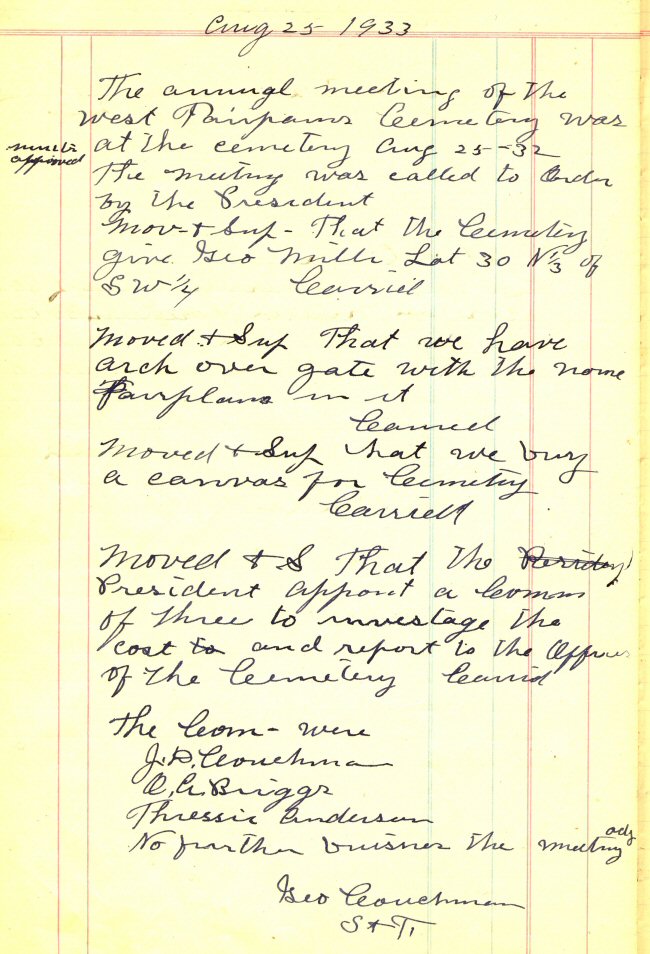 Aug 25 1933
The annual meeting of the
west Fairplains Cemetery was
at the cemetery Aug 25-32
minute
approved
The meeting was called to Order
by the President
Mov- & Sup- That the Cemetery
give Geo Mille Lot 30 N 1/3 of
SW 1/4 Carried
Moved & Sup That we have
arch over gate with the name
Fairplains in it
Carried
Moved & Sup that we buy
a canvas for Cemetery
Carried
Moved & S That the
President appoint a Comm
of three to investage the
cost to and report to the Officers
of the Cemetery Carrid
The Com- were
J.P. Couchman
O.A. Briggs
Thressie Anderson
No further buisnes the meeting adj
Geo Couchman
S & T.